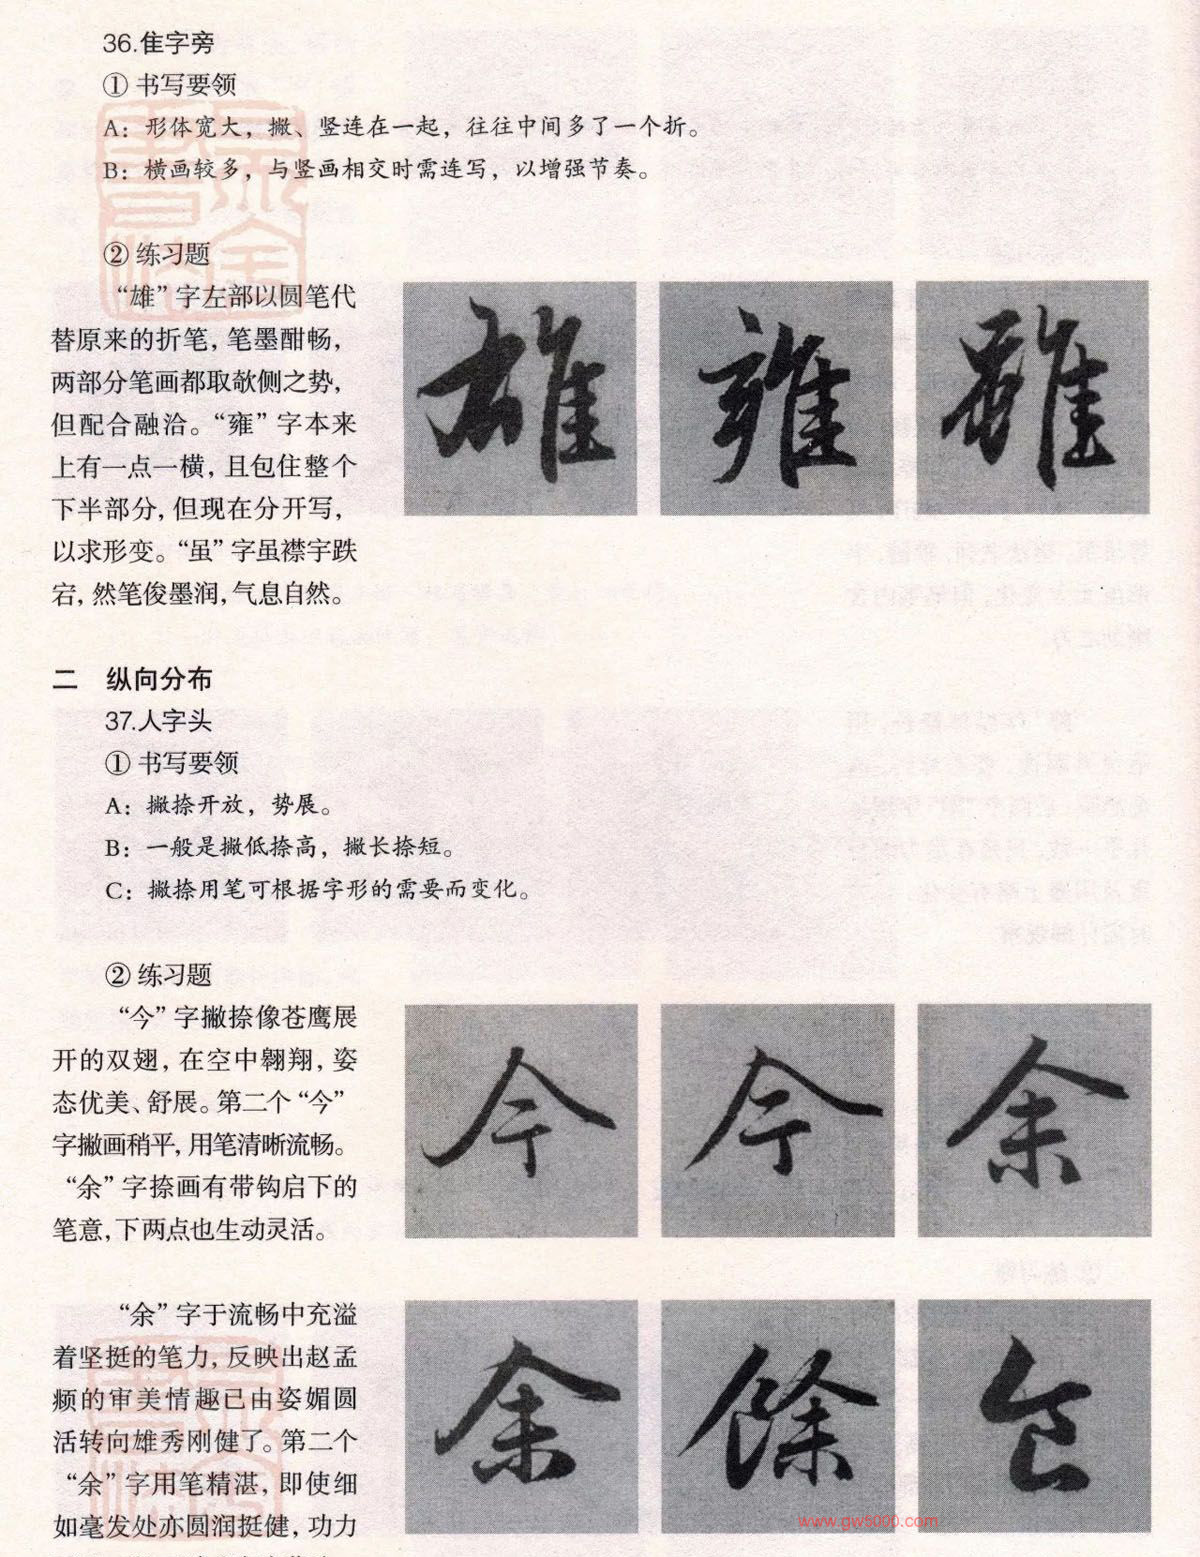 36.隹字旁
① 书写要领
A：形体宽大，撇、竖连在一起，往往中间多了一个折。
B：横画较多，与竖画相交时需连写，以增强节奏。
② 练习题
“雄”字左部以圆笔代
替原来的折笔，笔墨酣畅，
两部分笔画都取欹侧之势，
但配合融洽。“雍”字本来
上有一点一横，且包住整个
下半部分，但现在分开写，
以求形变。“虽”字虽襟宇跌
宕，然笔俊墨润，气息自然。
雄 雍 雖
二 纵向分布
37.人字头
① 书写要领
A：撇捺开放，势展。
B：一般是撇低捺高，撇长捺短。
C：撇捺用笔可根据字形的需要而变化。
② 练习题
“今”字撇捺像苍鹰展
开的双翅，在空中翱翔，姿
态优美、舒展。第二个“今”
字撇画稍平，用笔清晰流畅。
“余”字捺画有带钩启下的
笔意，下两点也生动灵活。
今 今 余
“余”字于流畅中充溢
着坚挺的笔力，反映出赵孟
𫖯的审美情趣已由姿媚圆
活转向雄秀刚健了。第二个
“余”字用笔精湛，即使细
如毫发处亦圆润挺健，功力
余 餘 食
www.gw5000.com